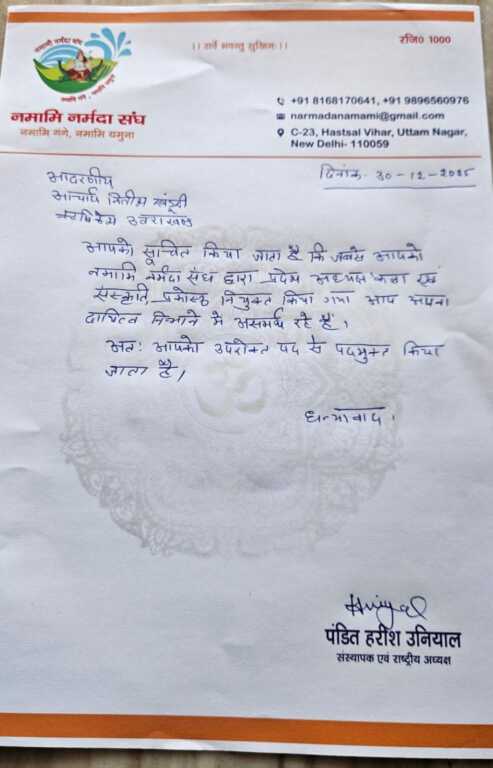 नमामि नर्मदा संघ
।। सर्वे भवन्तु सुखिनः ।।
रजि0 1000
नमामि नर्मदा संघ
नमामि गंगे, नमामि यमुना
+91 8168170641, +91 9896560976
narmadanamami@gmail.com
C-23, Hastsal Vihar, Uttam Nagar,
New Delhi- 110059
दिनांक- 30-12-2025
आदरणीय
आचार्य खंडूरी
उत्तराखण्ड
आपको सूचित किया जाता है कि जबसे आपको
नमामि नर्मदा संघ द्वारा प्रदेश अध्यक्ष कला एवं
संस्कृति प्रकोष्ठ नियुक्त किया गया आप अपना
दायित्व निभाने में असमर्थ रहे हैं।
अतः आपको उपरोक्त पद से पदमुक्त किया
जाता है।
धन्यवाद।
पंडित हरीश उनियाल
संस्थापक एवं राष्ट्रीय अध्यक्ष